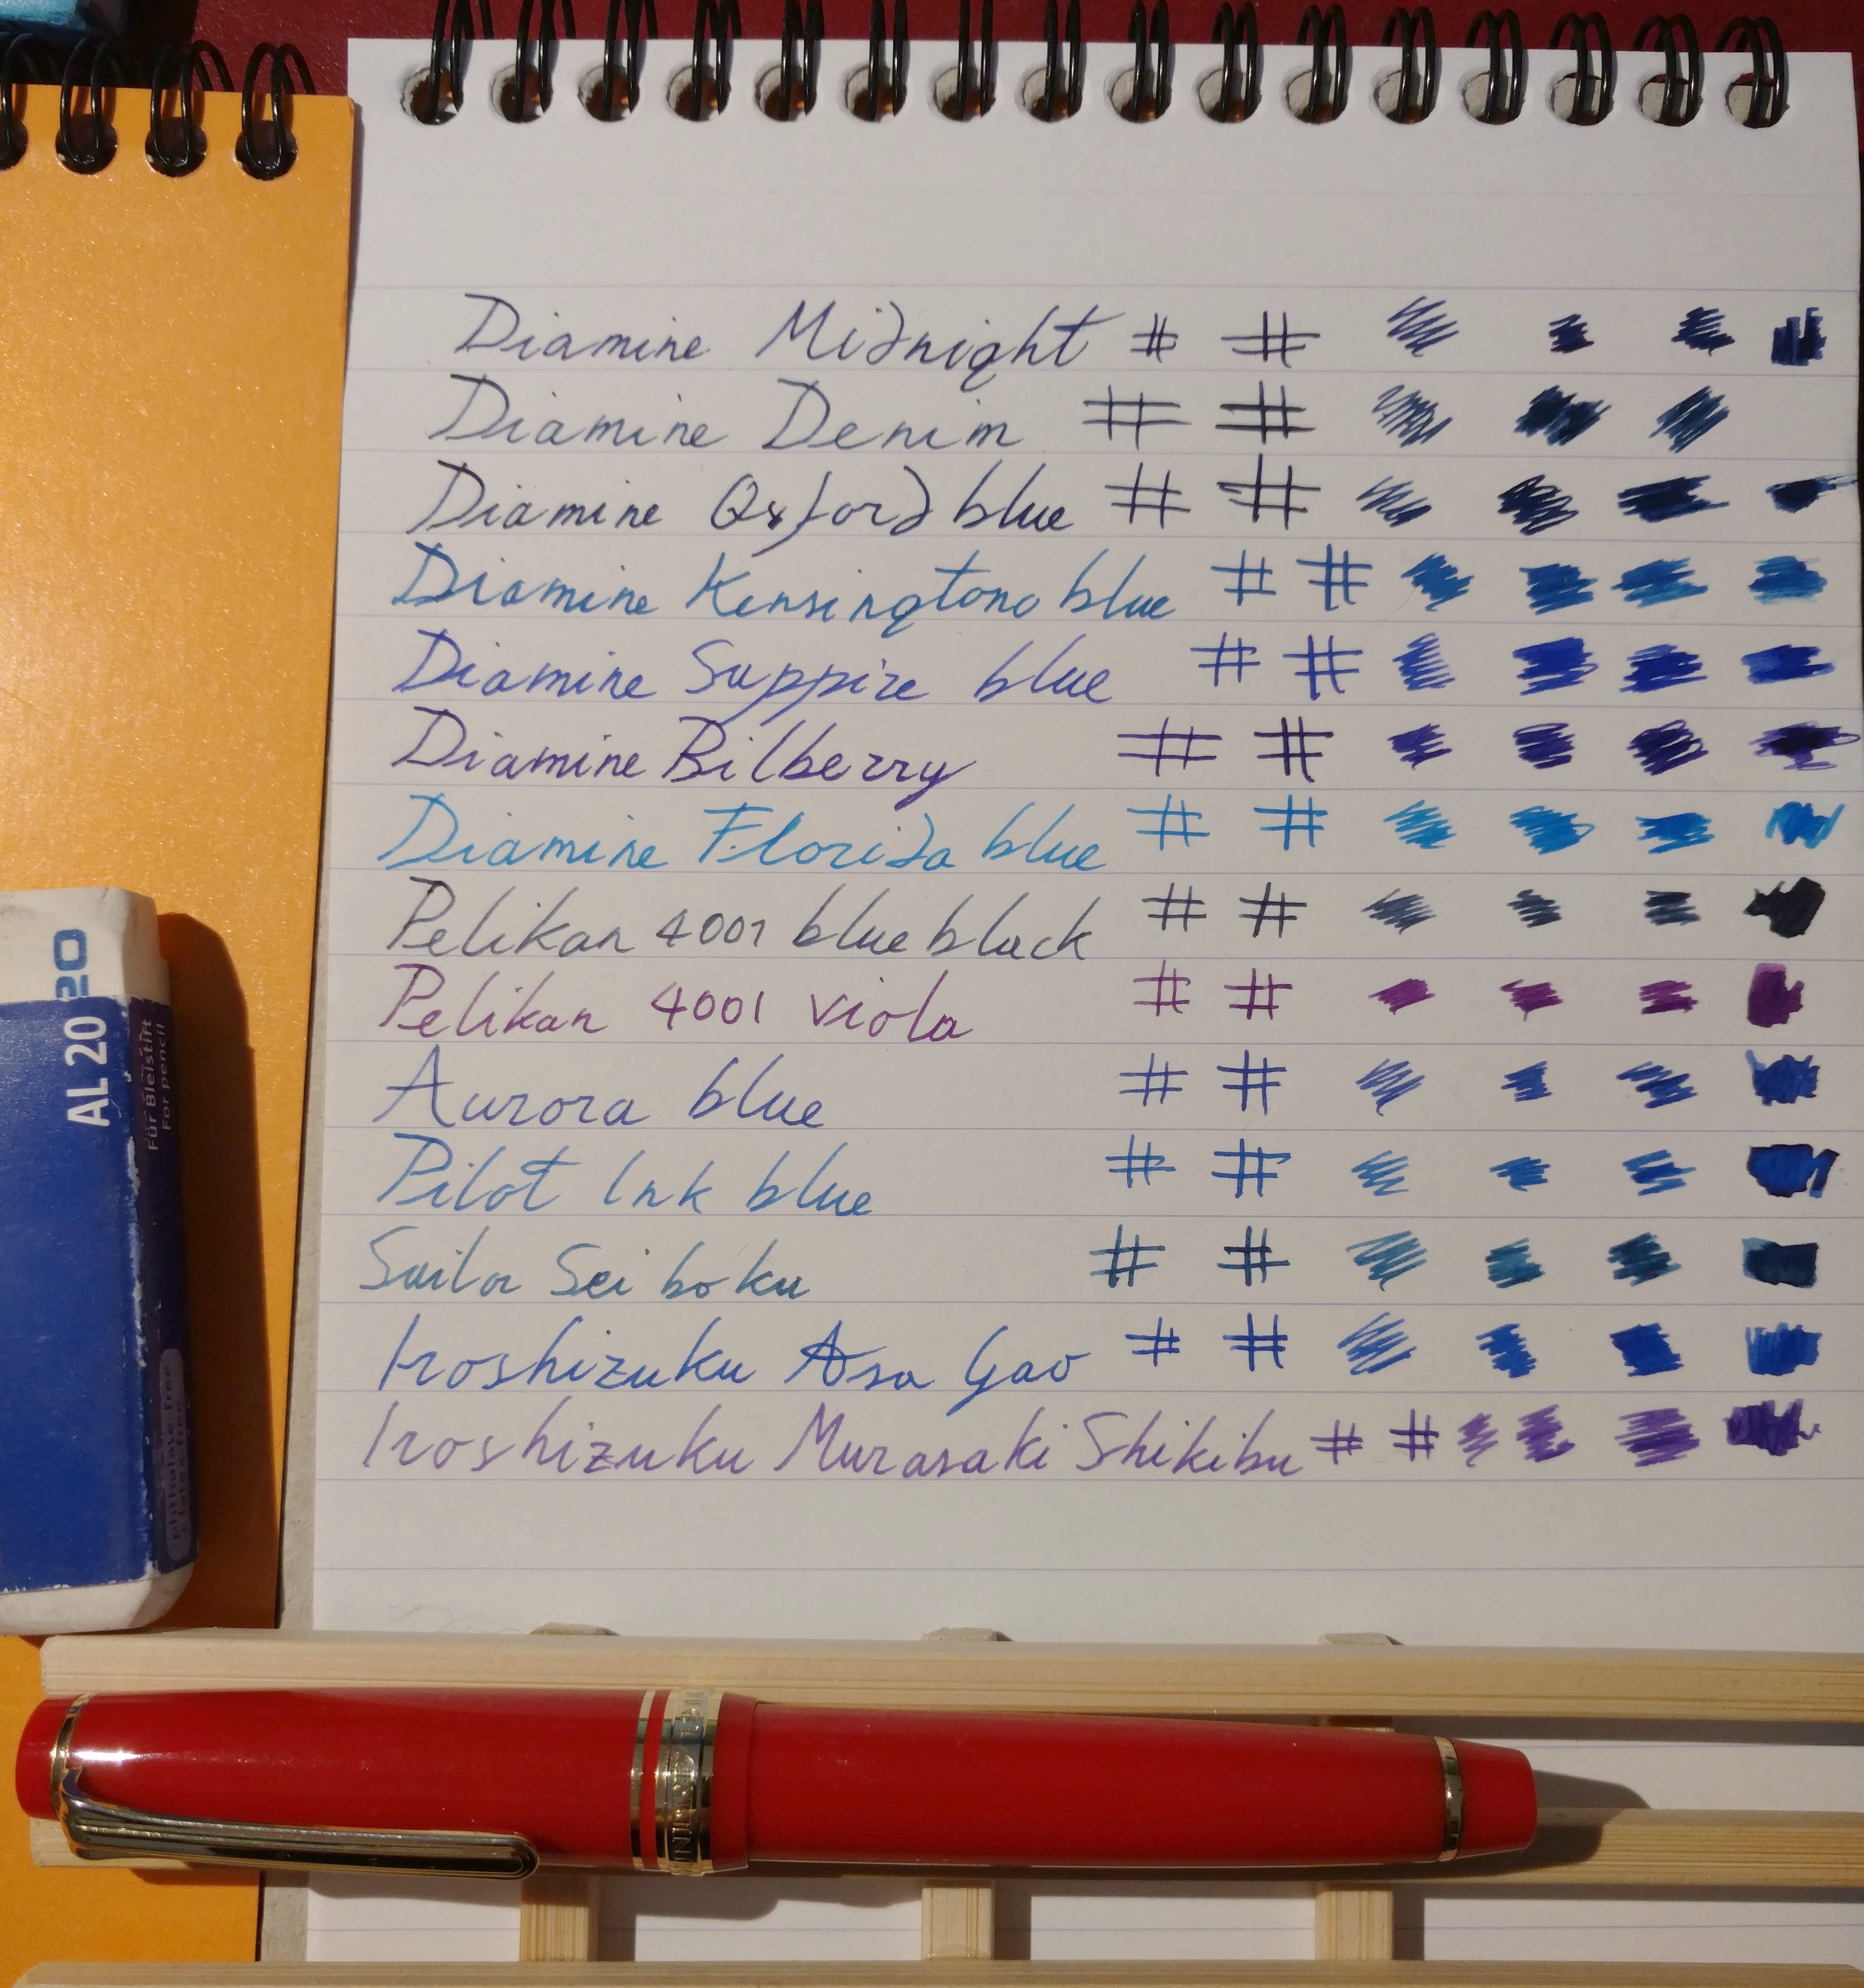 Diamine Midnight # #
Diamine Denim # #
Diamine Oxford blue # #
Diamine Kensingtono blue # #
Diamine Suppire blue # #
Diamine Bilberry # #
Diamine Florida blue # #
Pelikan 4001 blue black # #
Pelikan 4001 viola # #
Aurora blue # #
Pilot Ink blue # #
Sailor Sei boku # #
Iroshizuku Asa Gao # #
Iroshizuku Murasaki Shikibu # #
20
AL 20
Für Bleistift
For pencil
phthalate free
latex free